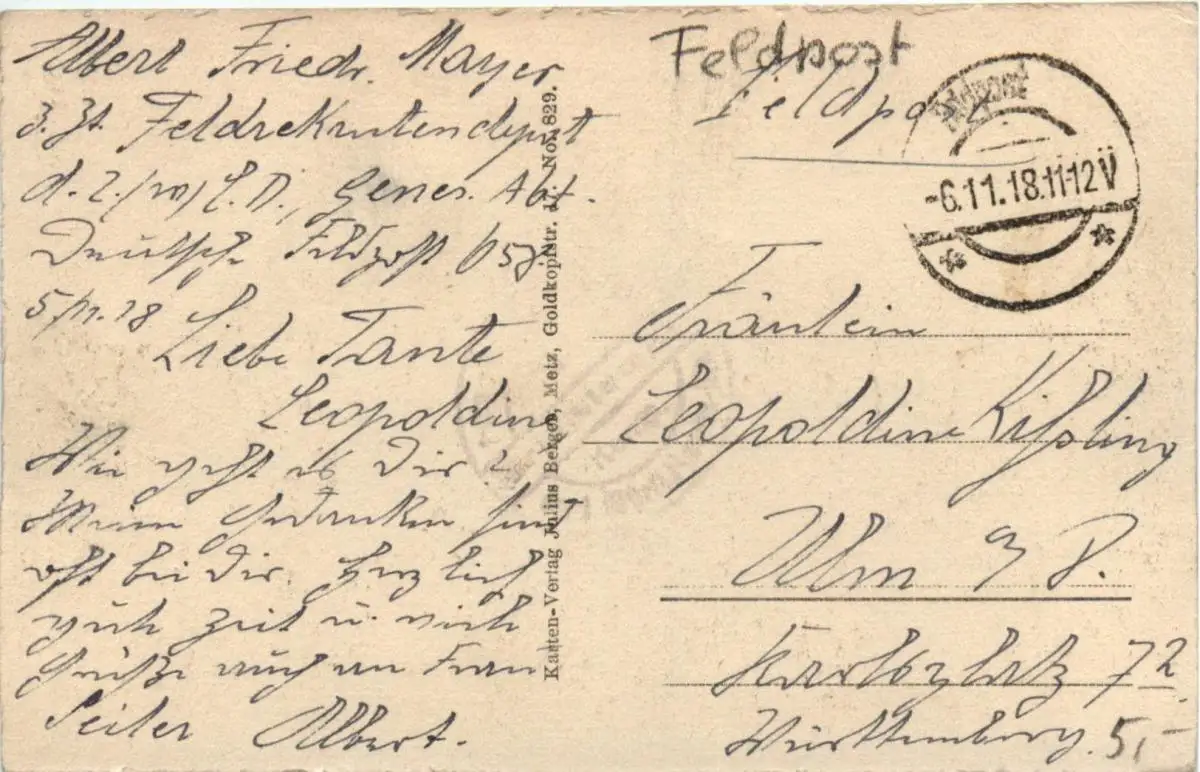 Albert Friedr. Mayer
z. Zt. Feldrekrutendepot
d. 2. L. D., Genes. Abt.
Deutsche Feldpost
5/11.18
Liebe Tante
Leopoldine
Wie geht es Dir?
Meine Gedanken sind
oft bei Dir. Herzlich
gute Zeit u. viele
Grüße auch an Frau
Seiler Albert.
Karten-Verlag Julius Berger, Metz, Goldkopfstr. 11. No. 829.
Feldpost
Feldpost
Feldpost
-6.11.18.11-12V
Fräulein
Leopoldine Kißling
Ulm a D.
Karlsplatz 72
Württemberg.
5,-